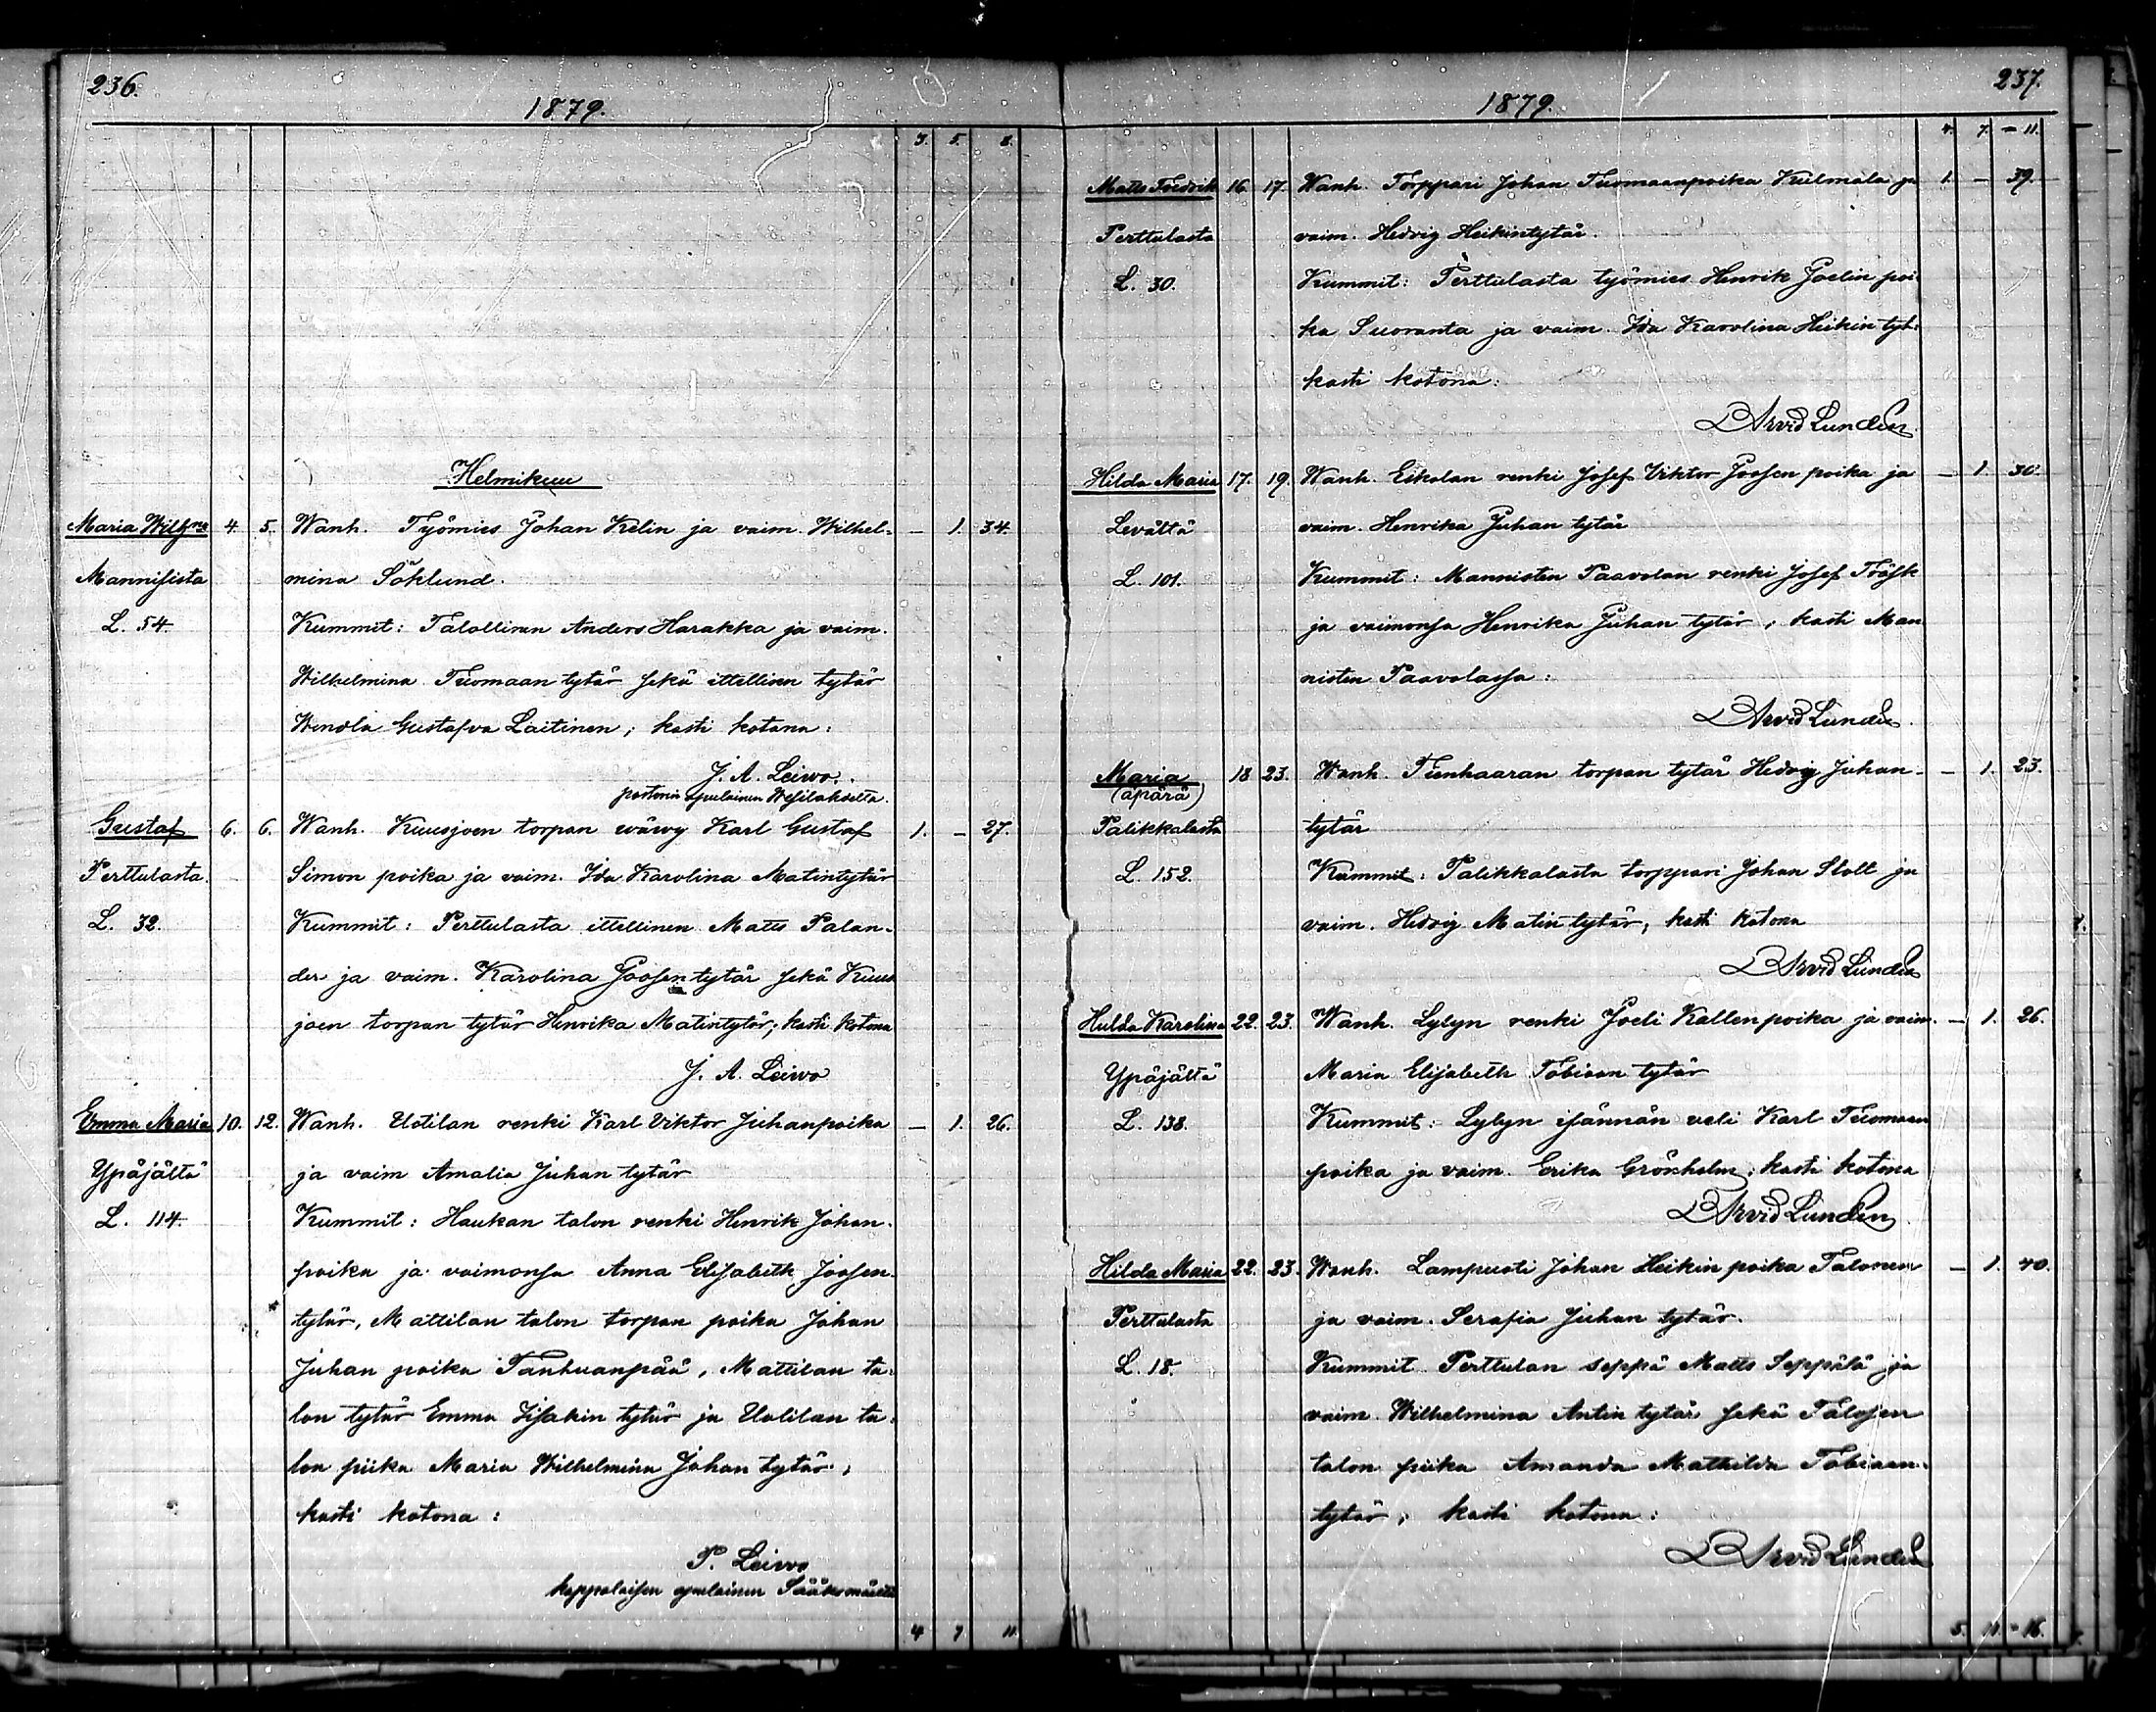 236.
1879.
3. 5. 8.
Helmikuu
Maria Wilh:na 4. 5. Wanh. Työmies Johan Kelin ja vaim. Wilhel- — 1. 34.
Mannifista mina Söklund.
L. 54. Kummit: Talollinen Anders Harakka ja vaim.
Wilhelmina Tuomaan tytär sekä ittellisen tytär
Wendla Gustafva Laitinen; kasti kotona:
J. A. Leivo.
pastorin apulainen Wesilahdelta.
Gustaf 6. 6. Wanh. Kuusjoen torpan wäwy Karl Gustaf 1. — 27.
Perttulasta. Simon poika ja vaim. Ida Karolina Matintytär
L. 32. Kummit: Perttulasta ittellinen Matts Palan-
der ja vaim. Karolina Joosentytär sekä Kuus
joen torpan tytär Henrika Matintytär; kasti kotona
J. A. Leivo
Emma Maria 10. 12. Wanh. Uotilan renki Karl Viktor Juhanpoika — 1. 26.
Ypäjältä ja vaim Amalia Juhan tytär
L. 114. Kummit: Haukan talon renki Henrik Johan-
poika ja vaimonsa Anna Elisabeth Joosen-
tytär, Mattilan talon torpan poika Johan
Juhan poika Tanhuanpää, Mattilan ta-
lon tytär Emma Iisakin tytär ja Uotilan ta-
lon piika Maria Wilhelmina Johan tytär;
kasti kotona:
P. Leivo
kappalaisen apulainen Sääksmäeltä
4 7 11.
237.
1879.
4. 7. — 11.
Matts Fredrik 16. 17. Wanh. Torppari Johan Tuomaanpoika Kulmala ja 1. — 39.
Perttulasta vaim. Hedvig Heikintytär.
L. 30. Kummit: Perttulasta työmies Henrik Joelin poi
ka Suoranta ja vaim. Ida Karolina Heikin tyt:
kasti kotona:
Arvid Lunden.
Hilda Maria 17. 19. Wanh. Eskolan renki Josef Viktor Joosen poika ja — 1. 30.
Levältä vaim. Henrika Juhan tytär
L. 101. Kummit: Mannisten Paavolan renki Josef Träsk
ja vaimonsa Henrika Juhan tytär; kasti Man
nisten Paavolassa:
Arvid Lunden.
Maria 18. 23. Wanh. Tienhaaran torpan tytär Hedvig Juhan- — 1. 23.
(äpärä)
Palikkalasta tytär
L. 152. Kummit: Palikkalasta torppari Johan Stolt ja
vaim. Hedvig Matin tytär; kasti kotona
Arvid Lunden
Hulda Karolina 22. 23. Wanh. Lylyn renki Joeli Kallenpoika ja vaim. — 1. 26.
Ypäjältä Maria Elisabeth Tobiaan tytär
L. 138. Kummit: Lylyn isännän veli Karl Tuomaan
poika ja vaim. Erika Grönholm; kasti kotona
Arvid Lunden.
Hilda Maria 22. 23. Wanh. Lampuoti Johan Heikin poika Talonen — 1. 40.
Perttulasta ja vaim. Serafia Juhan tytär.
L. 18. Kummit Perttulan seppä Matts Seppälä ja
vaim. Wilhelmina Antin tytär sekä Talosen
talon piika Amanda Mathilda Tobiaan-
tytär; kasti kotona:
Arvid Lunden
5. 11. — 16.